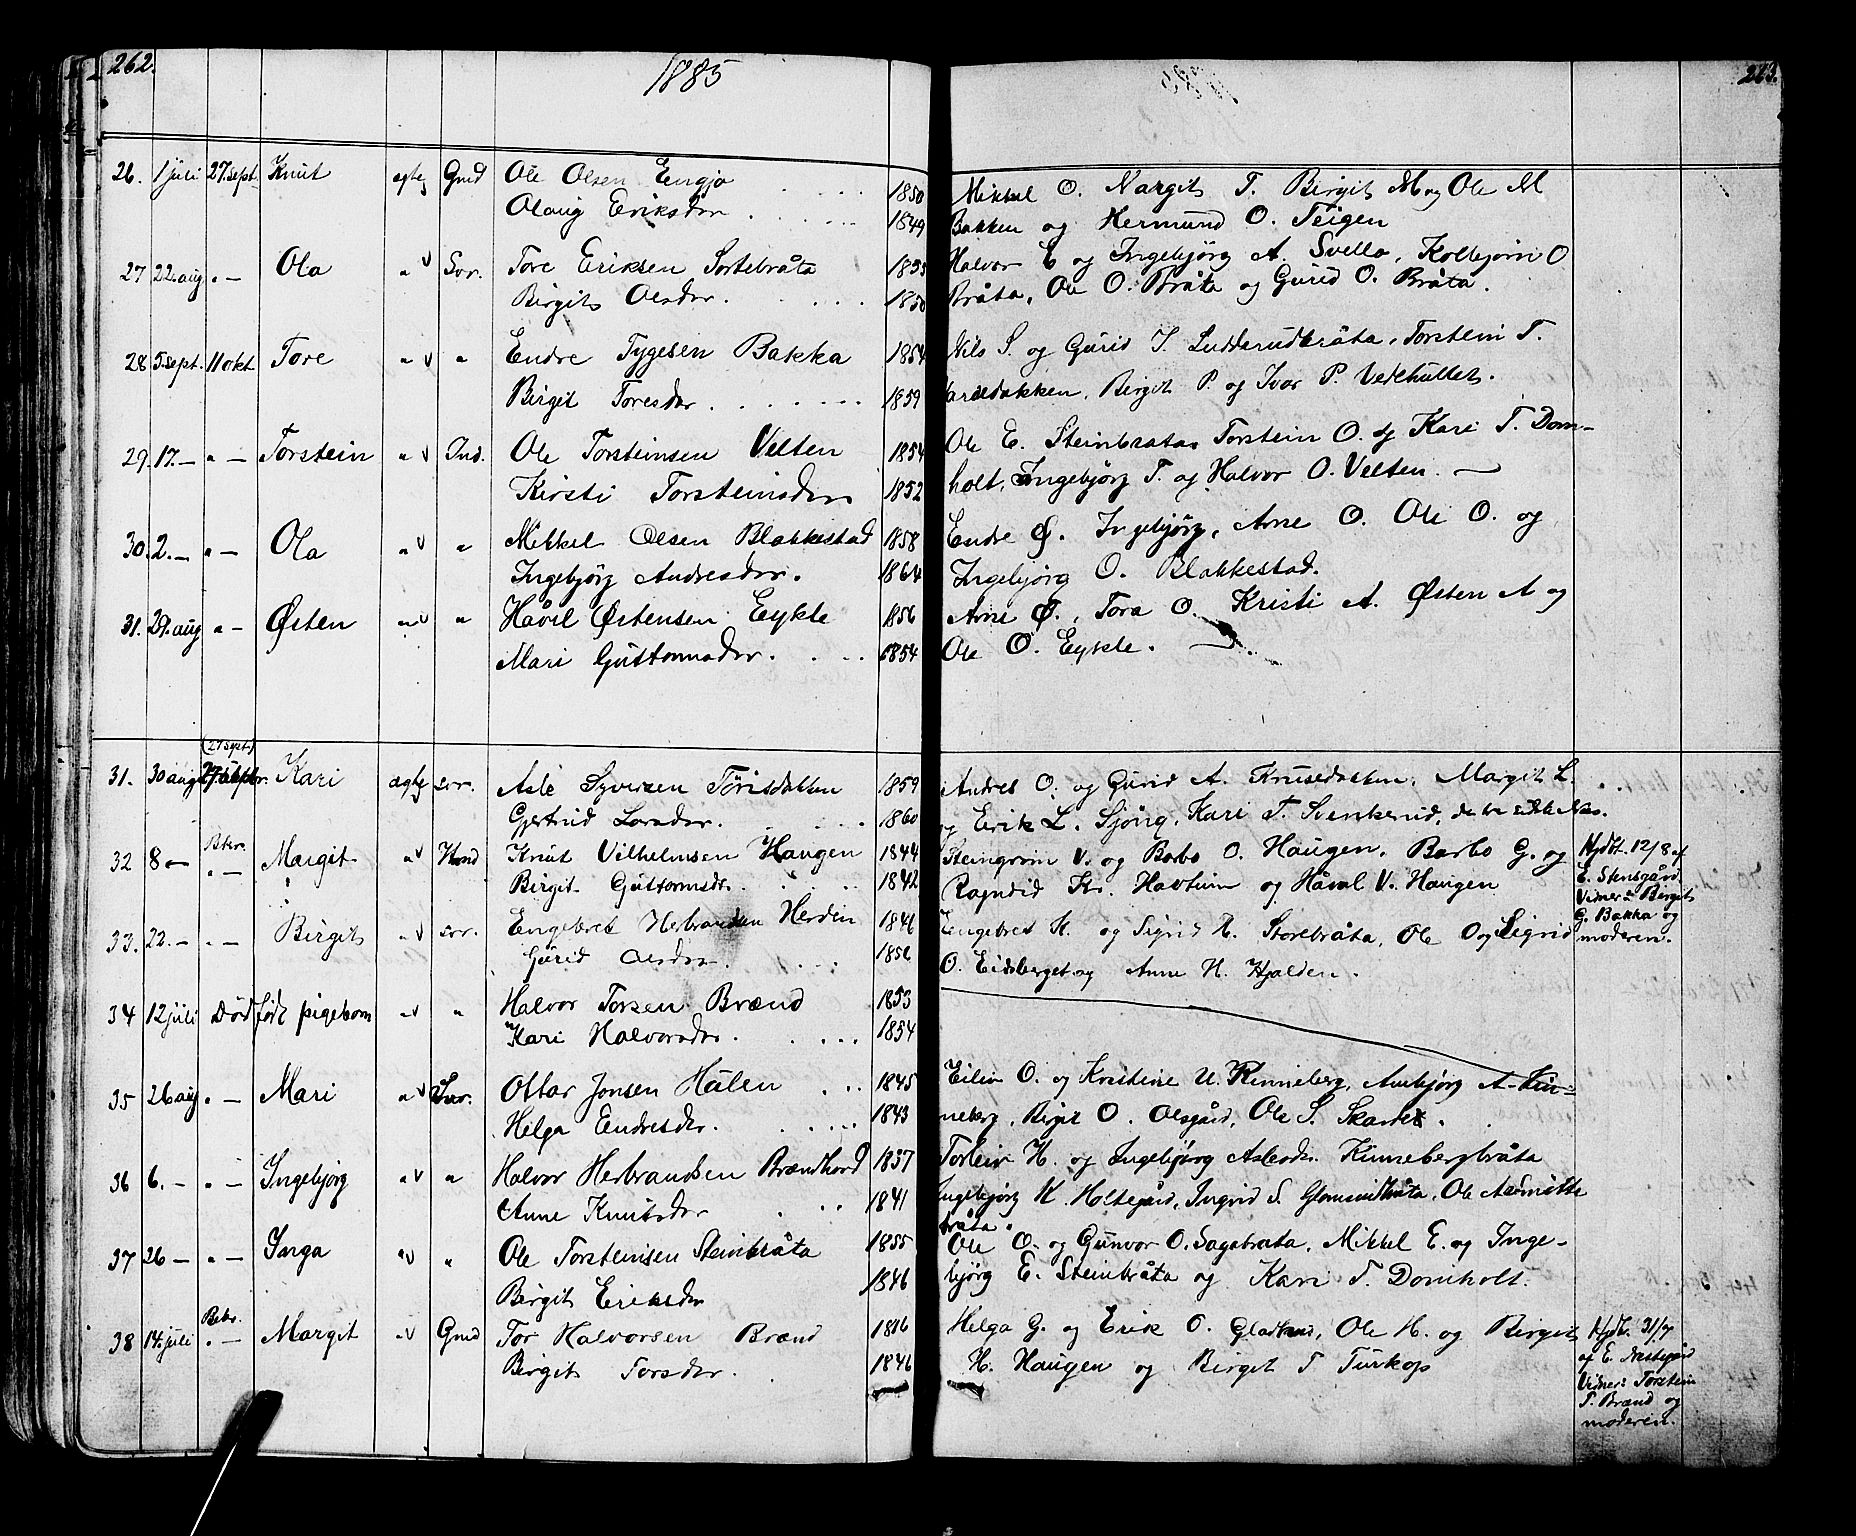 262.
1885
26. 1 juli 27. sept. Knut ægte Gmd Ole Olsen Engjo 1850
Olaug Eriksdtr 1849
27 22. aug " — Ola " v Svr. Tore Eriksen Sortebråta 1855
Birgit Olsdtr. 1850
28 5. sept. 11 okt Tore " v " Endre Tygesen Bakka 1854
Birgit Toresdtr 1859
29. 17. — " — Torstein " v Ind. Ole Torsteinsen Velten 1854
Kirsti Torsteinsdtr 1852
30. 2. — " — Ola " v " Mikkel Olsen Blakkestad 1858
Ingebjørg Andresdtr. 1864
31. 29. aug " — Østen " v " Håvel Østensen Eykle 1856
Mari Guttormsdtr. 1854
(27 sept.)
31. 30 aug Kari ægte Svr. Asle Syversen Torisdokken 1859
Gjertrud Larsdtr. 1860
Bekr.
32 8 — " — Margit " v Hmd Knut Vilhelmsen Haugen 1844
Birgit Guttormsdr. 1842
33. 22. — " — Birgit " v Svr. Engebret Herbrandsen Herdin 1846
Gurid Olsdtr. 1856
34 12 juli Dødfødt pigebarn " v " Halvor Torsen Brænd 1853
Kari Halvorsdtr. 1854
35 26 aug " — Mari " v Svr. Ottar Jonsen Halen 1845
Helga Endresdtr. 1843
36 6. — " — Ingebjørg " v " Halvor Herbrandsen Brændhord 1837
Anne Knutsdtr 1841
37 26 — " — Inga " v " Ole Torsteinsen Steinbråta 1855
Birgit Eriksdtr 1846
Bekr.
38 14. juli " — Margit " v Gmd Tor Halvorsen Brænd 1816
Birgit Torsdtr. 1846
263.
Mikkel O. Margit T. Birgit M og Ole M
Bakken og Hermund O. Teigen
Halvor E og Ingebjørg A. Svello, Kolbjørn O
Bråta, Ole O. Bråta og Gurid O. Bråta.
Nils S. og Gurid J. Ludderudbråta, Torstein T.
Birgit P. og Ivar P. Vedehullet.
Ole E. Steinbrata Torstein O. og Kari T. Dom-
holt, Ingebjørg T. og Halvor O. Velten. —
Endre Ø. Ingebjørg, Arne O. Ole O. og
Ingebjørg O. Blakkestad.
Arne Ø., Tora O. Kristi A. Østen A og
Ole O. Eykle. —
Andres O. og Gurid A. Krusedokken, Margit L.
og Erik L. Sjong, Kari T. Svenkerud,
Steingrim V. og Barbo O. Haugen, Barbo G. og
Ragndid Kr. Havtun og Håval V. Haugen
Engebret H. og Sigrid H. Storebråta, Ole O og Sigrid
O. Eidsberget og Anne H. Hjalden.
Eiliv O. og Kristine U. Kinneberg, Ambjørg A. Kin-
neberg, Birgit O. Olsgård, Ole S. Skardet.
Torleiv H. og Ingebjørg Aslesdr. Kinnebergbråta
Ingebjørg K. Holtegård, Ingrid S. Glomsrudbråta, Ole
bråta.
Ole O. og Gunvor O. Sagabrata, Mikkel E. og Inge-
bjørg E. Steinbråta og Kari T. Domholt.
Helga G. og Erik O. Gladhus, Ole H. og Birgit
H. Haugen og Birgit T Turkop
Hjdbt. 12/8 af
E. Stensgård
Vidner: Birgit
G. Bakka og
moderen.
Hjdbt. 31/7
af E. Nestegård
Vidner: Torstein
T. Brænd og
moderen.